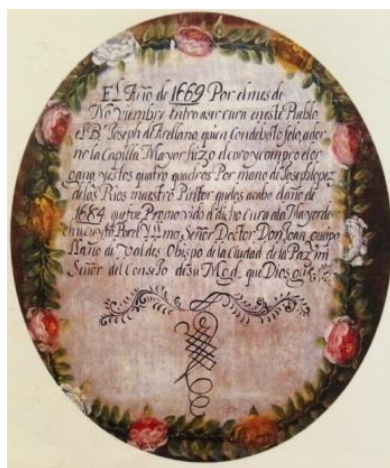 EL Año de 1669 Por el mes de
Noviembre entro a ser cura en este Pueblo
el B.r Joseph de Arellano, quien con deboto selo, ador
no la Capilla Mayor hizo el coro y compro el or
gano, y estos quatro quadros Por mano de Joseph lopez
de los Rios maestro Pintor q los acabo el año de
1684 que fue Promovido a dicho cura a la Mayor de
chucuyto Por el Yll.mo Señor Doctor Don Joan
LLano de Valdes Obispo de la Ciudad de la Paz mi
Señor del Consejo de su Mgd. que Dios g.e